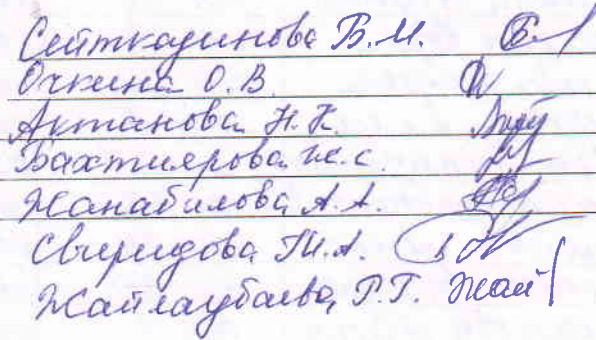 Сейткадинова Б.М.
Очкина О.В.
Актанова Н.К.
Бахтиярова Ж.С.
Жанабилова А.А.
Свиридова Т.А.
Жайлаубаева Р.Т. Жай